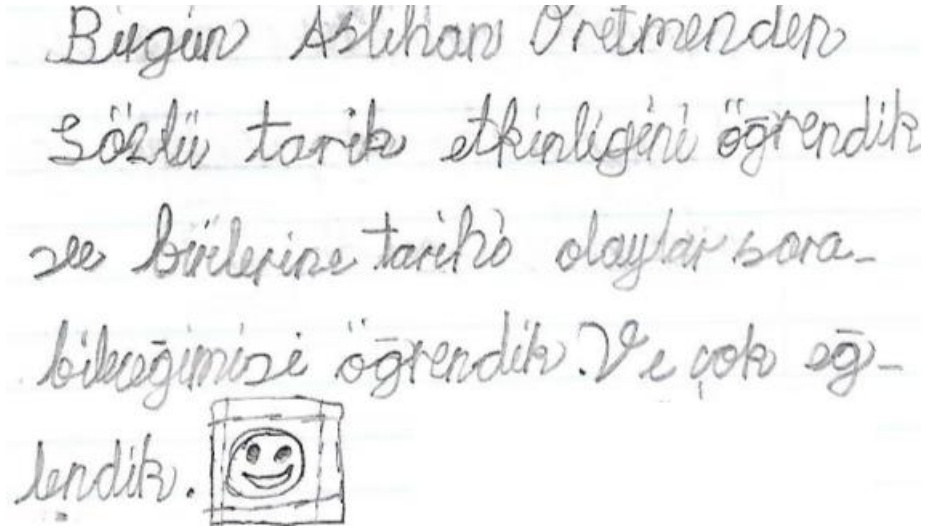 Bugün Aslıhan Öretmenden
Sözlü tarih etkinligini öğrendik
ve birilerine tarihi olaylar sora-
bileceğimizi öğrendik. Ve çok eğ-
lendik.